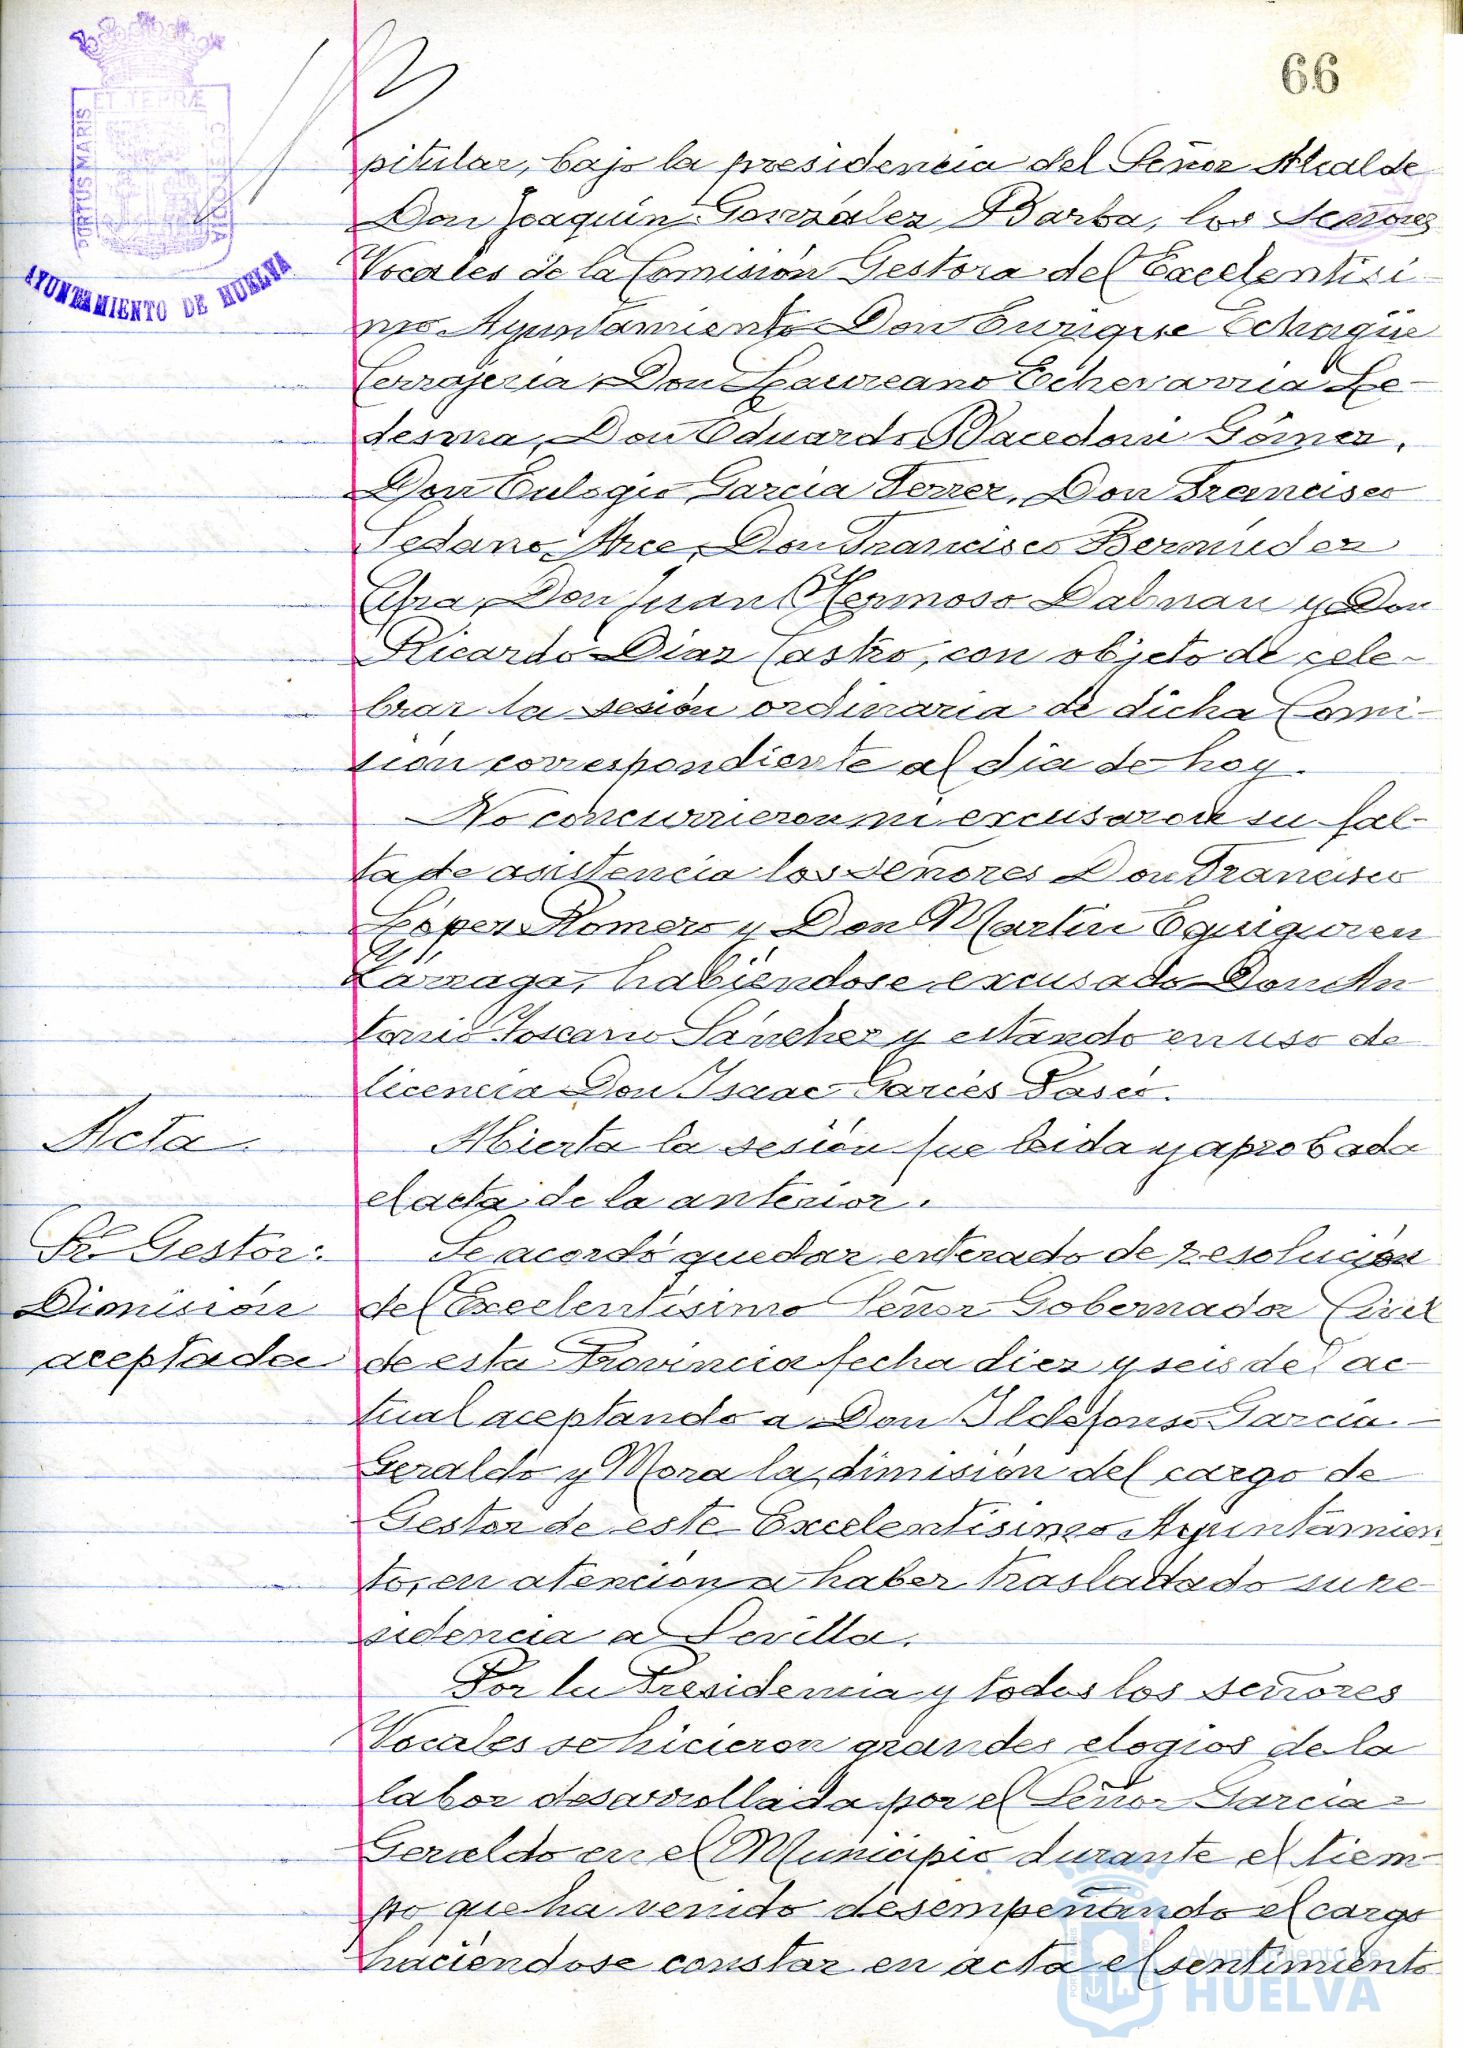 66
PORTUS MARIS
ET TERRÆ
CUSTODIA
AYUNTAMIENTO DE HUELVA
pitular, bajo la presidencia del Señor Alcalde
Don Joaquín González Barba, los Señores
Vocales de la Comisión Gestora del Excelentísi-
mo Ayuntamiento Don Enrique Echagüe
Cerrajería, Don Laureano Echevarria Le-
desma, Don Eduardo Macedoni Gómez,
Don Eulogio García Ferrer, Don Francisco
Sedano Arce, Don Francisco Bermúdez
Don Juan Hermoso Dalmau y Don
Ricardo Díaz Castro, con objeto de cele-
brar la sesión ordinaria de dicha Comi-
sión correspondiente al día de hoy.
No concurrieron ni excusaron su fal-
ta de asistencia los señores Don Francisco
López Romero y Don Martín Eguiguren
Lárraga, habiéndose excusado Don An
tonio Toscano Sánchez y estando en uso de
licencia Don Isaac Garcés
Acta.
Abierta la sesión fue leida y aprobada
el acta de la anterior.
Sr. Gestor:
Dimisión
aceptada
Se acordó quedar enterado de resolución
del Excelentísimo Señor Gobernador Civil
de esta Provincia fecha diez y seis del ac-
tual aceptando a Don Ildefonso García-
Geraldo y Mora la dimisión del cargo de
Gestor de este Excelentísimo Ayuntamien
to, en atención a haber trasladado su re-
sidencia a Sevilla.
Por la Presidencia y todos los señores
Vocales se hicieron grandes elogios de la
labor desarrollada por el Señor García-
Geraldo en el Municipio durante el tiem-
po que ha venido desempeñando el cargo
haciéndose constar en acta el sentimiento
Ayuntamiento de
HUELVA